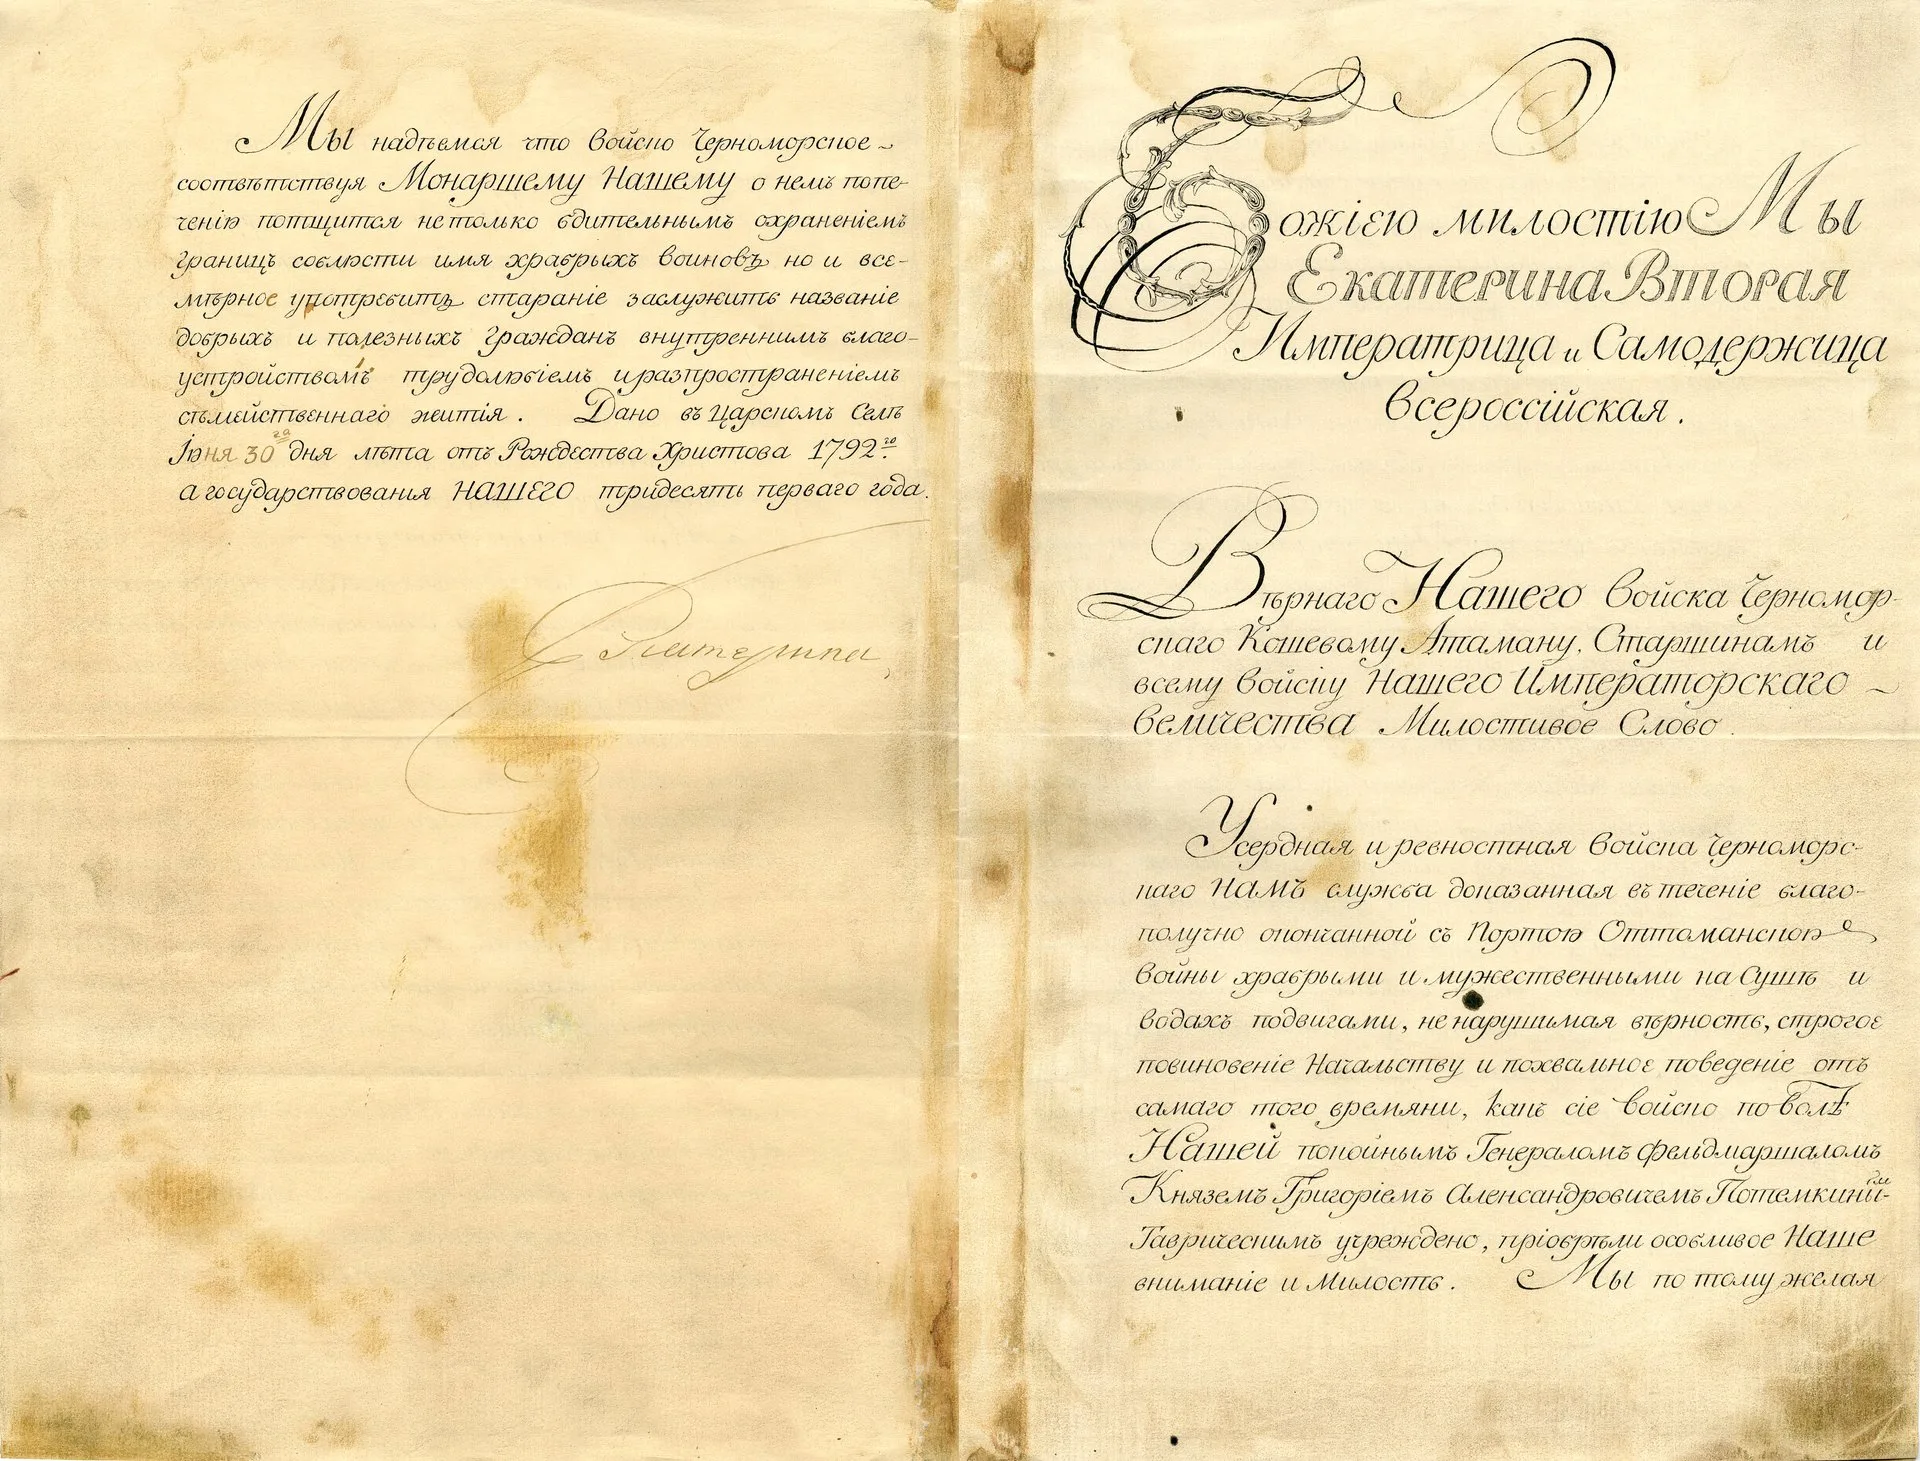 Мы надѣемся что войско Черноморское
соотвѣтствуя Монаршему Нашему о немъ попе-
ченію потщится не только бдительнымъ охраненіемъ
границъ соблюсти имя храбрыхъ воиновъ но и все-
мѣрное употребить стараніе заслужить названіе
добрыхъ и полезныхъ гражданъ внутреннимъ благо-
устройствомъ трудолюбіемъ и распространеніемъ
сѣмейственнаго житія. Дано въ Царскомъ Селѣ
Іюня 30го дня лѣта отъ Рождества Христова 1792го
а государствованія НАШЕГО тридесять перваго года.
Екатерина
Божіею милостію Мы
Екатерина Вторая
Императрица и Самодержица
всероссійская.
Вѣрнаго Нашего войска Черномор-
скаго Кошевому Атаману, Старшинамъ и
всему войску Нашего Императорскаго
величества Милостивое Слово.
Усердная и ревностная войска Черноморс-
каго НАМЪ служба доказанная въ теченіе благо-
получно оконченной съ Портою Оттоманскою
войны храбрыми и мужественными на Сушѣ и
водахъ подвигами, не нарушимая вѣрность, строгое
повиновеніе Начальству и похвальное поведеніе отъ
самаго того времяни, какъ сіе войско по волѣ
Нашей покойнымъ Генераломъ фельдмаршаломъ
Княземъ Григоріемъ Александровичемъ Потемкинымъ-
Таврическимъ учреждено, пріобрѣли особливое Наше
вниманіе и милость. Мы по тому желая